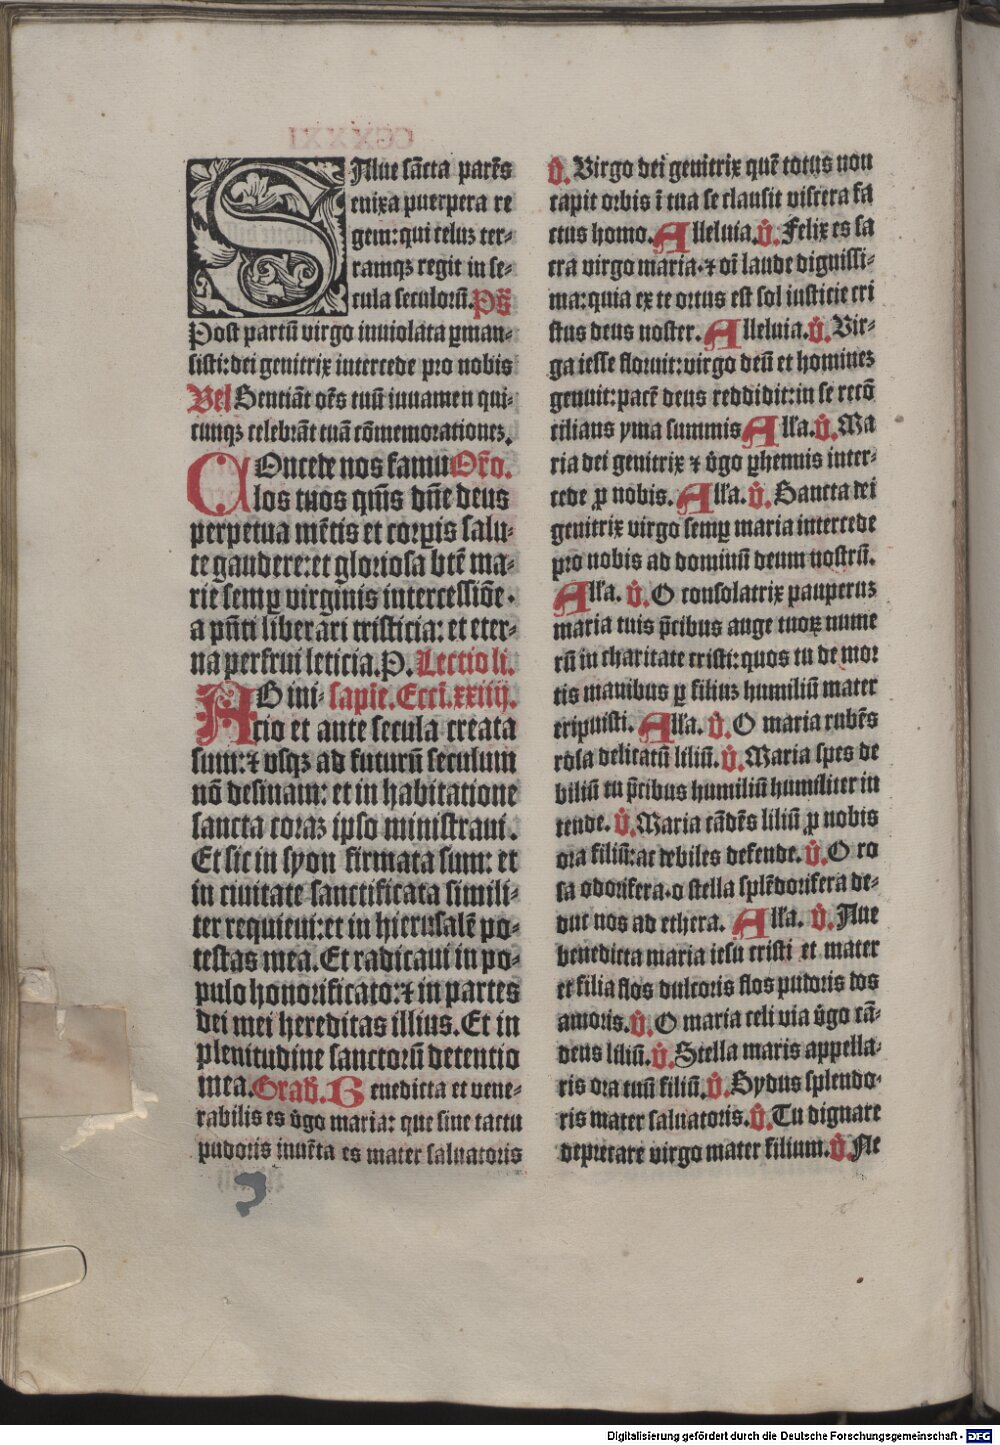 SAlue sācta parēs
enixa puerpera re
gem: qui celuꝫ ter⸗
ramqꝫ regit in se⸗
cula seculorū. Pš
Post partū virgo inuiolata ꝑman⸗
sisti: dei genitrix intercede pro nobis
Vel Sentiāt oēs tuū iuuamen qui⸗
cunqꝫ celebrāt tuā cōmemorationeꝫ.
COncede nos famu Orō.
los tuos qm̄s dn̄e deus
perpetua mētis et corꝑis salu⸗
te gaudere: et gloriosa btē ma⸗
rie semꝑ virginis intercessiōe ·
a pn̄ti liberari tristicia: et eter⸗
na perfrui leticia. P. Lectio li.
AB ini⸗ sapiē. Eccl̄. xxiiij.
cio et ante secula creata
sum: ⁊ vsqꝫ ad futurū seculum
nō desinam: et in habitatione
sancta coraꝫ ipso ministraui.
Et sic in syon firmata sum: et
in ciuitate sanctificata simili⸗
ter requieui: et in hierusalē po⸗
testas mea. Et radicaui in po⸗
pulo honorificato: ⁊ in partes
dei mei hereditas illius. Et in
plenitudine sanctorū detentio
mea. Grad̄. Benedicta et vene⸗
rabilis es v̄go maria: que sine tactu
pudoris inuēta es mater saluatoris
V̄. Virgo dei genitrix quē totus non
capit orbis ī tua se clausit viscera fa
ctus homo. Alleluia. V̄. Felix es sa
cra virgo maria · ⁊ oī laude dignissi⸗
ma: quia ex te ortus est sol iusticie cri
stus deus noster. Alleluia. V̄. Vir⸗
ga iesse floruit: virgo deū et homineꝫ
genuit: pacē deus reddidit: in se recō
cilians yma summis Alľa. V̄. Ma
ria dei genitrix ⁊ v̄go ꝑhennis inter⸗
cede ꝓ nobis. Alľa. V̄. Sancta dei
genitrix virgo semꝑ maria intercede
pro nobis ad dominū deum nostrū.
Alľa. V̄. O consolatrix pauperuꝫ
maria tuis p̄cibus auge tuoꝝ nume
rū in charitate cristi: quos tu de mor
tis manibus ꝑ filiuꝫ humiliū mater
eripuisti. Alľa. V̄. O maria rubēs
rosa delicatū liliū. V̄. Maria spes de
biliū tu p̄cibus humiliū humiliter in
tende. V̄. Maria cādēs liliū ꝓ nobis
ora filiū: ac debiles defende. V̄. O ro
sa odorifera · o stella splēdorifera de⸗
duc nos ad ethera. Alľa. V̄. Aue
benedicta maria iesu cristi et mater
et filia flos dulcoris flos pudoris dos
amoris. V̄. O maria celi via v̄go cā⸗
dens liliū. V̄. Stella maris appella⸗
ris ora tuū filiū. V̄. Sydus splendo⸗
ris mater saluatoris. V̄. Tu dignare
deprecare virgo mater filium. V̄. Ne
Digitalisierung gefördert durch die Deutsche Forschungsgemeinschaft - DFG